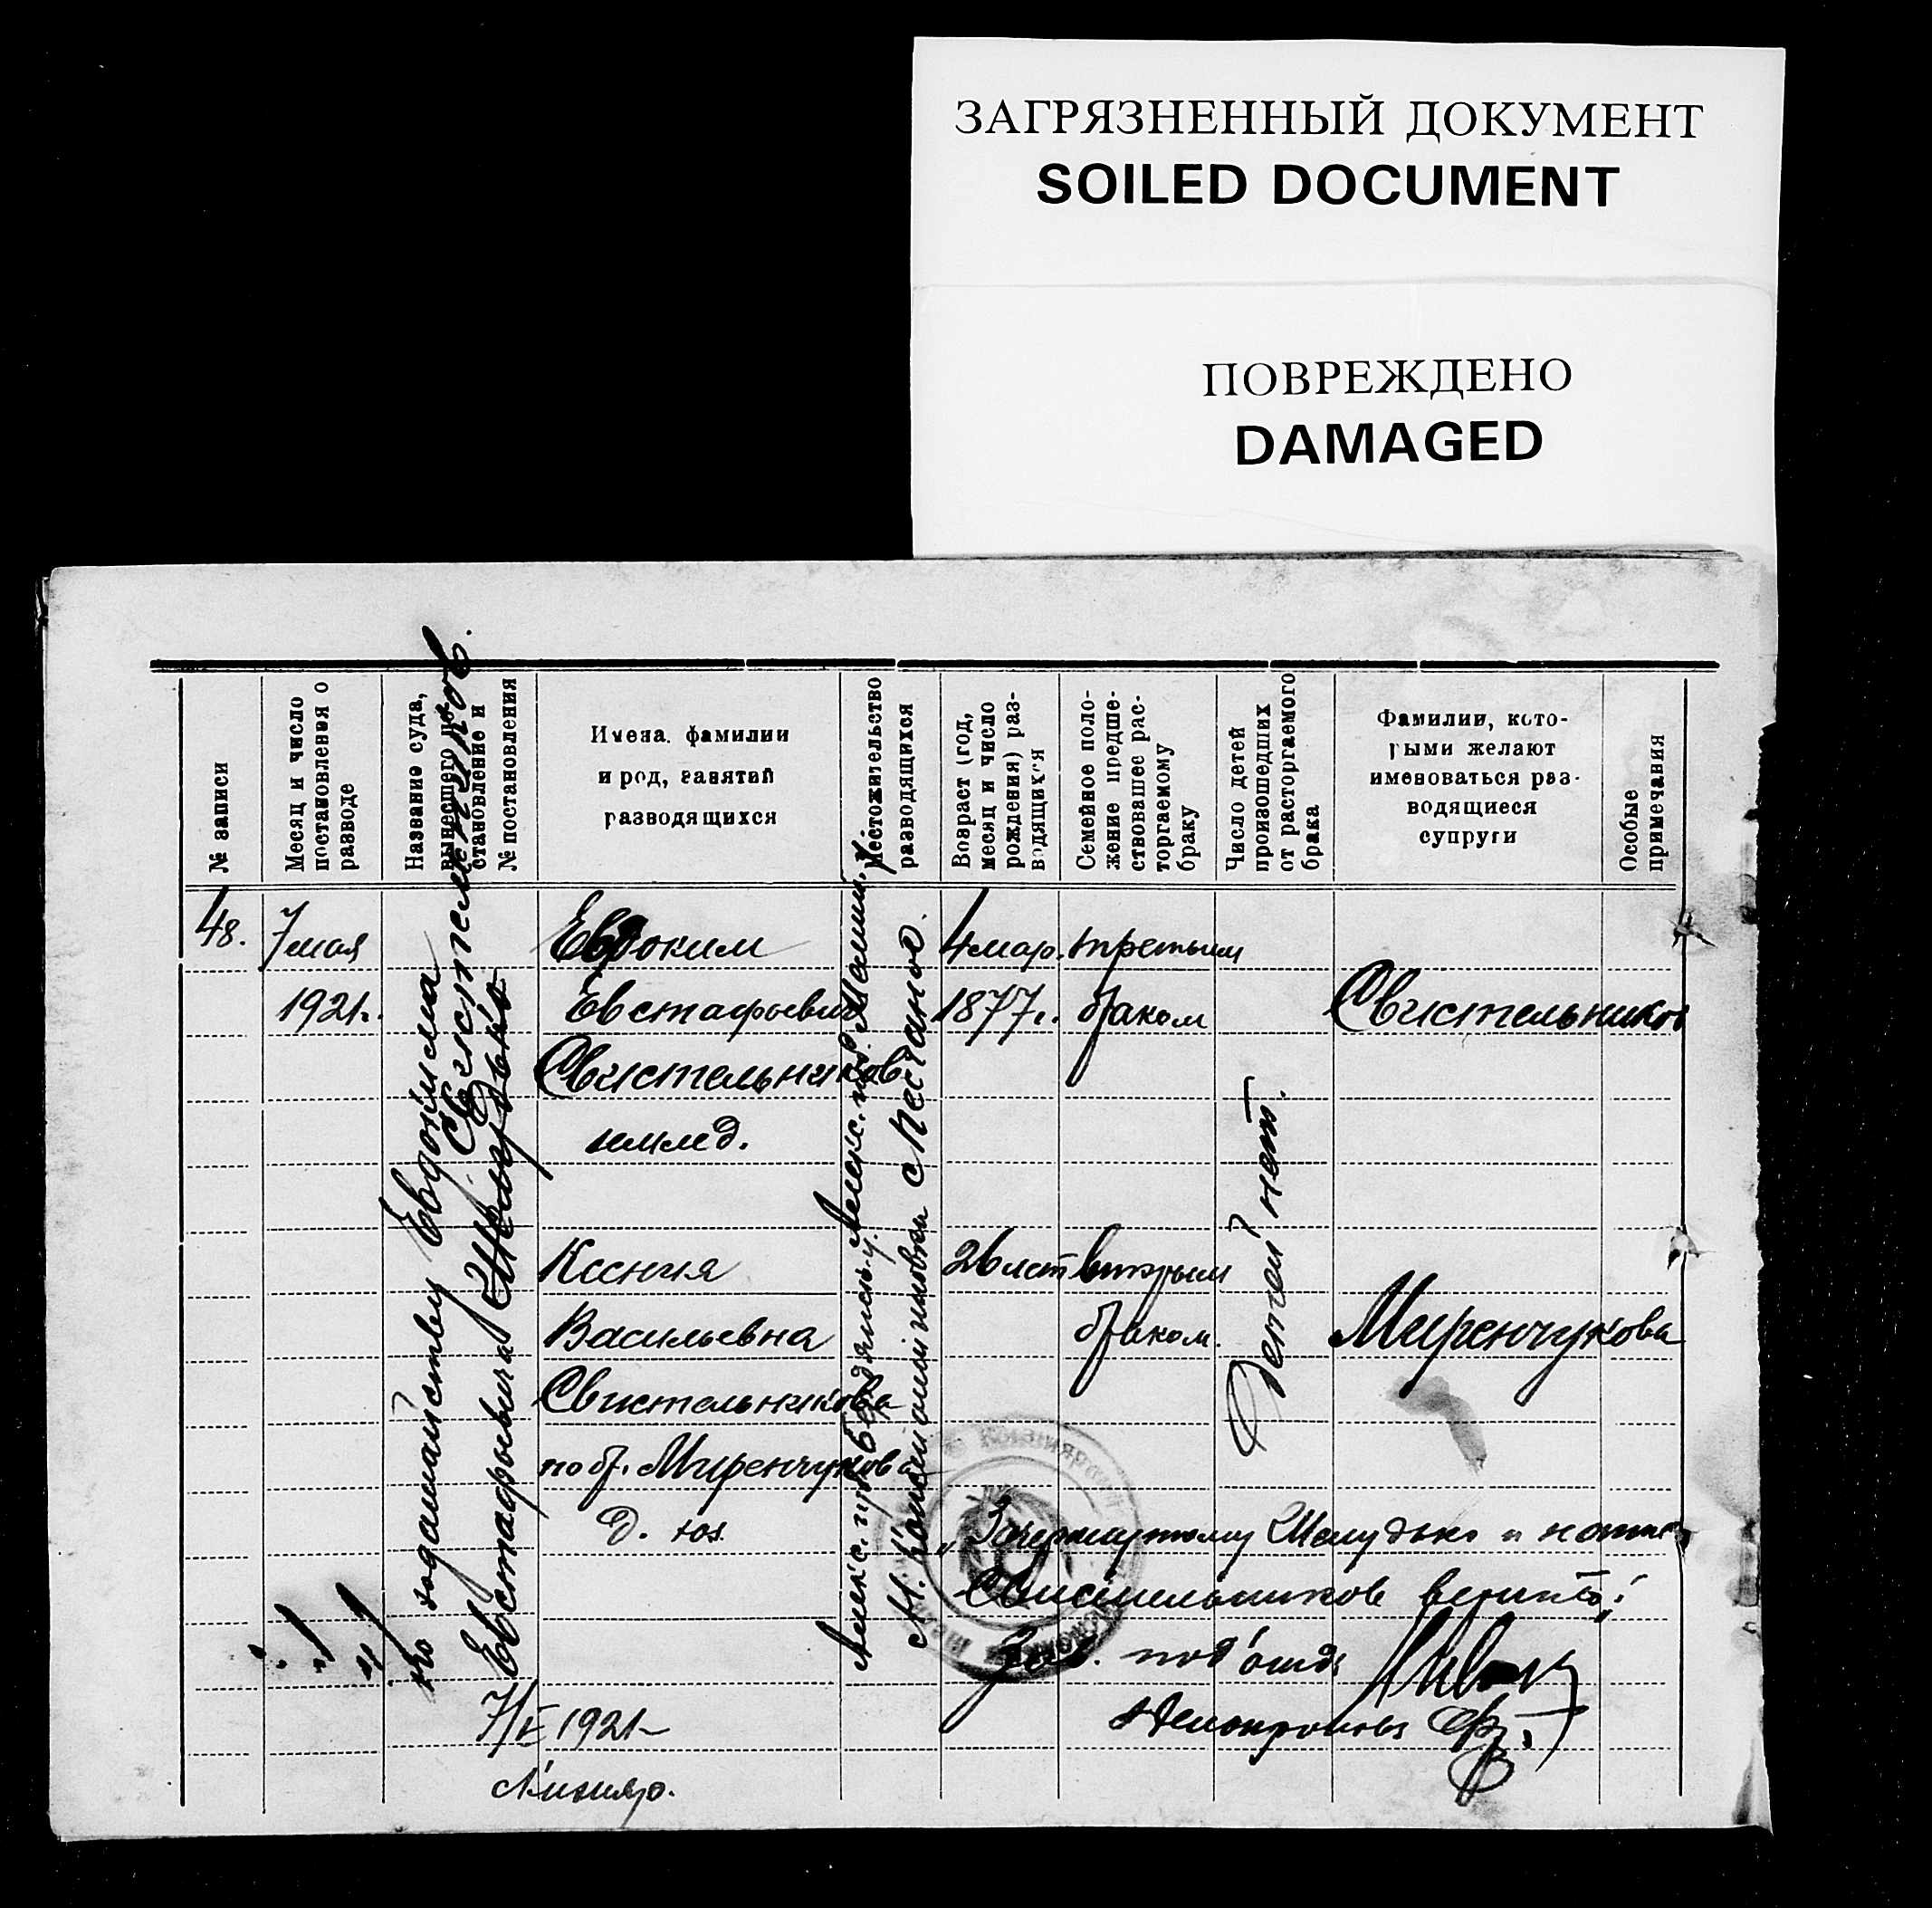 ЗАГРЯЗНЕННЫЙ ДОКУМЕНТ
SOILED DOCUMENT
ПОВРЕЖДЕНО
DAMAGED
№ записи
Месяц и число
постановления о
разводе
Название суда,
вынесшего по-
становление и
№ постановления
Имена, фамилии
и род, занятий
разводящихся
Местожительство
разводящихся
Возраст (год,
месяц и число
рождения) раз-
водящихся
Семейное поло-
жение предше-
ствовавшее рас-
торгаемому
браку
Число детей
происшедших
от расторгаемого
брака
Фамилии, кото-
рыми желают
именоваться раз-
водящиеся
супруги
Особые
примечания
48.
7 мая
1921 г.
Евдокима
Свистельников.
Евстафьевича Шелудько
Евдоким
Евстафьевич
Свистельников
4 мар.
1877 г.
третьим
браком
Свистельников
Ксения
Васильевна
Свистельникова
по бр. Миренчукова
д. хоз.
26 лет
вторым
браком.
Детей нет.
Миренчукова
"Зачеркнутому Шелудько и
Свистельников верить"
Зав. под'отд.
7/V 1921 г.
Кизляр.